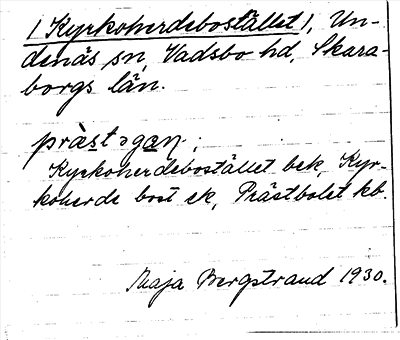 /Kyrkoherdebostället/, Un-
denäs sn, Vadsbo hd, Skara-
borgs län.
pràstəgaṇ;
Kyrkoherdebostället bek, Kyr-
koherde bost ek, Prästbolet kb.
Maja Bergstrand 1930.